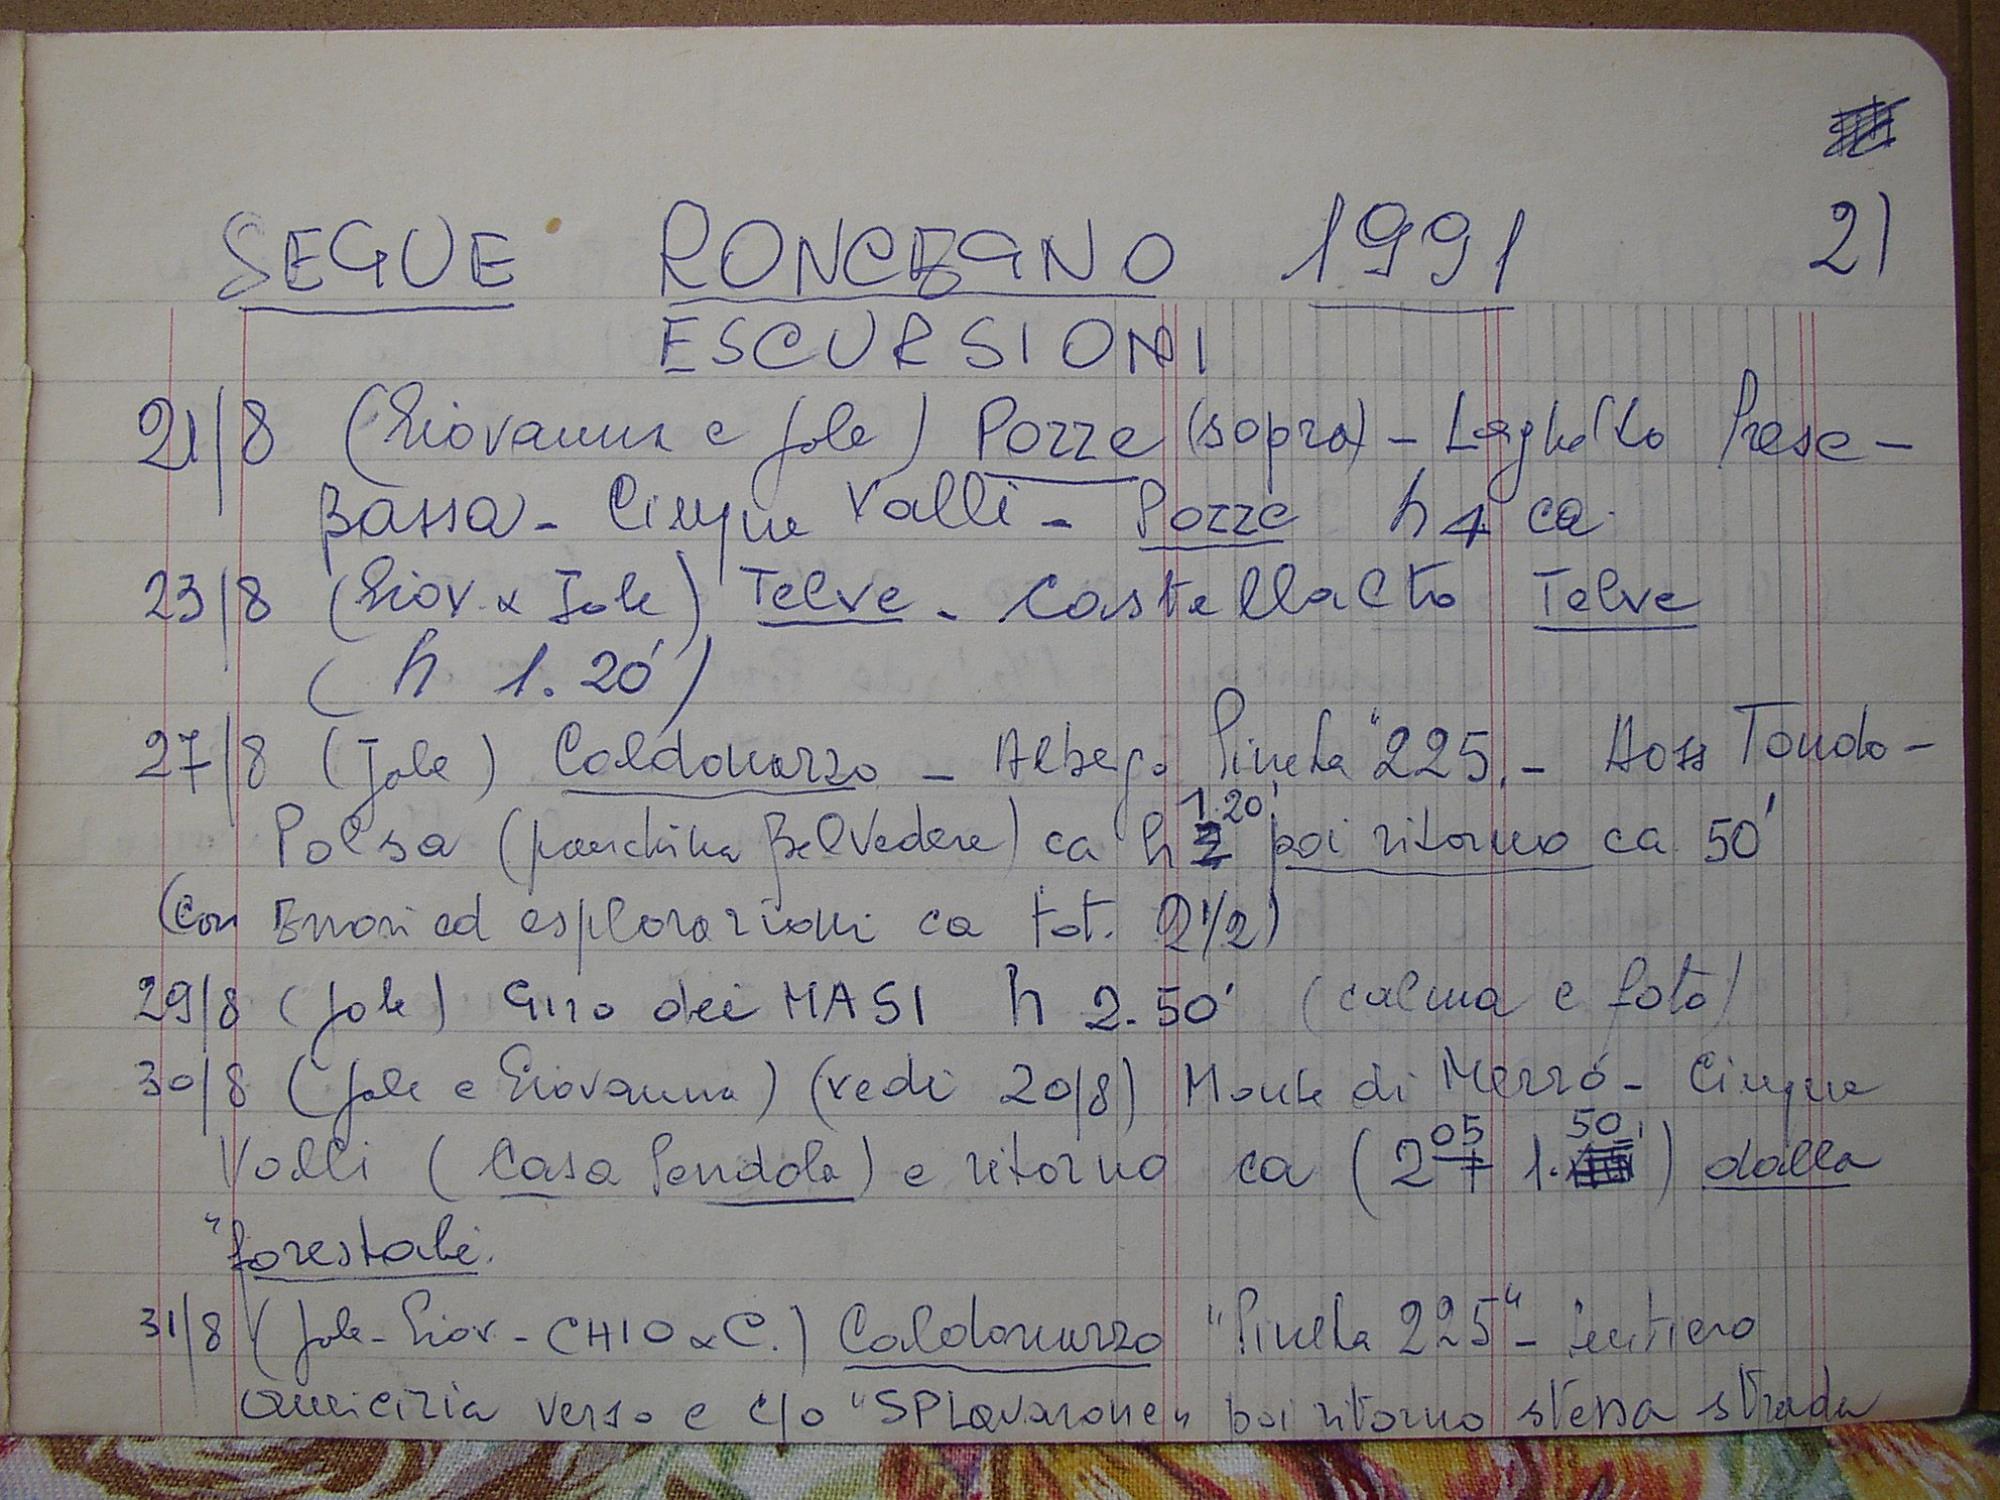 21
SEGUE RONCEGNO 1991
ESCURSIONI
21/8 (Giovanna e Jole) Pozze (sopra) - Laghetto Prese-
Bassa - Cinque Valli - Pozze h 4 ca.
23/8 (Giov. x Jole) Telve - Castellalto Telve
(h 1.20')
27/8 (Jole) Caldonazzo - Albergo Pineta "225. - Doss Tondo -
Polsa (panchina Belvedere) ca h 1.20' poi ritorno ca 50'
(con Errori ed esplorazioni ca tot. 2 1/2)
29/8 (Jole) Giro dei MASI h 2.50' (calma e foto)
30/8 (Jole e Giovanna) (vedi 20/8) Monte di Mezzo - Cinque
Valli (Casa Pendola) e ritorno ca (2 05 + 1.50') dalla
"forestale.
31/8 (Jole - Giov - CHIO x C.) Caldonazzo "Pineta 225" - Sentiero
amicizia verso e c/o "SPLavarone" poi ritorno stessa strada